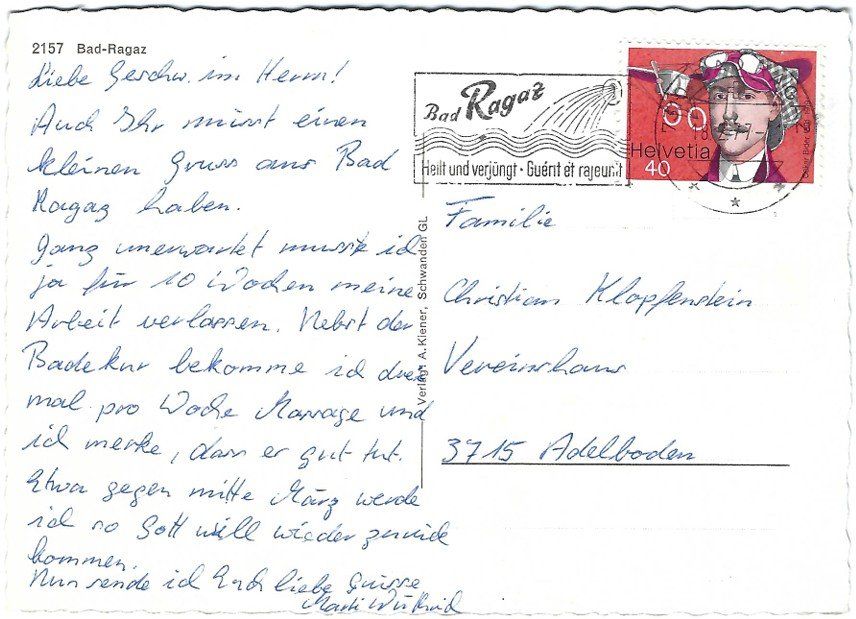 2157 Bad-Ragaz
Liebe Geschw. im Herrn!
Auch Ihr müsst einen
kleinen Gruss aus Bad
Ragaz haben.
Ganz unerwartet musste ich
ja für 10 Wochen meine
Arbeit verlassen. Nebst der
Badekur bekomme ich drei
mal pro Woche Massage und
ich merke, dass er gut tut.
Etwa gegen mitte März werde
ich so Gott will wieder zurück
kommen.
Nun sende ich Euch liebe Grüsse
Verlag: A. Kliener, Schwanden GL
Bad Ragaz
Heilt und verjüngt · Guérit et rajeunit
Helvetia
40
Familie
Christian Klopfenstein
Vereinshaus
3715 Adelboden